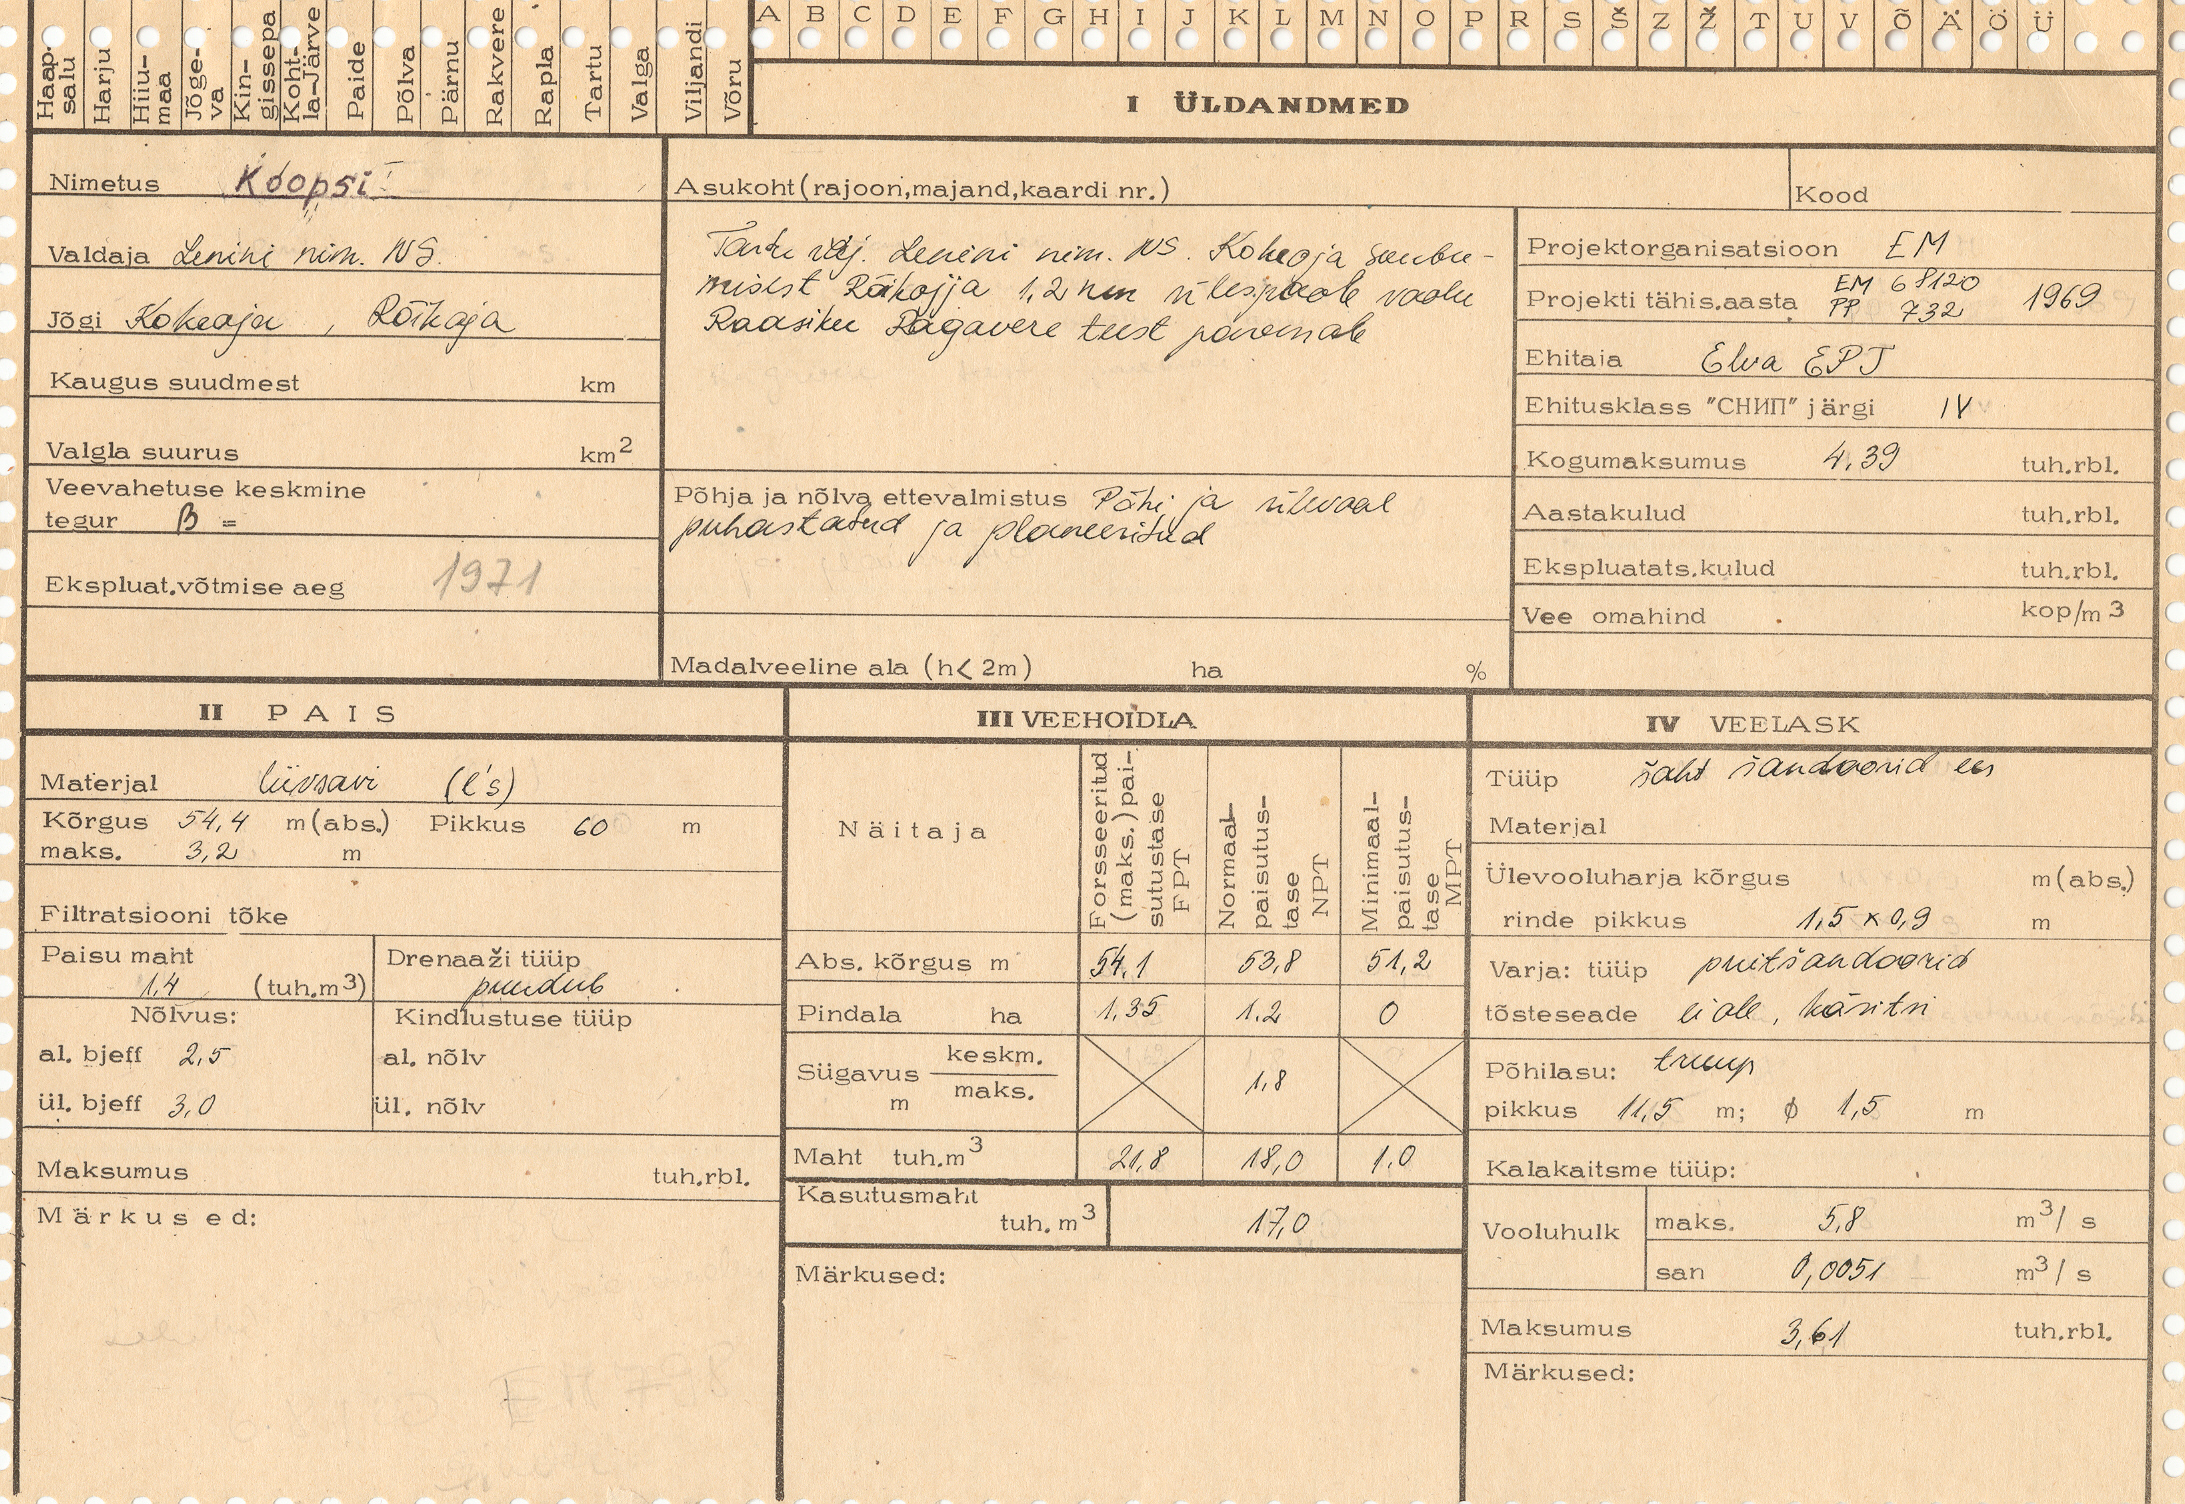 A B C D E F G H I J K L M N O P R S Š Z Ž T U V Õ Ä Ö Ü
Haap-
salu
Harju
Hiiu-
maa
Jõge-
va
Kin-
gissepa
Koht-
la-Järve
Paide
Põlva
Pärnu
Rakvere
Rapla
Tartu
Valga
Viljandi
Võru
I ÜLDANDMED
Nimetus Koopsi
Valdaja Lenini nim. NS.
Jõgi Kokeoja,
Kaugus suudmest km
Valgla suurus km2
Veevahetuse keskmine
tegur B =
Ekspluat.võtmise aeg 1971
Asukoht(rajoon,majand,kaardi nr.)
Tartu raj. Lenini nim. NS. Kokeoja suubu-
misest 1,2 km ülespoole voolu
Raasiku teest paremale
Põhja ja nõlva ettevalmistus Põhi ja
puhastatud ja planeeritud
Madalveeline ala (h< 2m) ha %
Kood
Projektorganisatsioon EM
Projekti tähis.aasta EM 68120 1969
PP 732
Ehitaja Elva EPT
Ehitusklass "СНИП" järgi IV
Kogumaksumus 4,39 tuh.rbl.
Aastakulud tuh.rbl.
Ekspluatats.kulud tuh.rbl.
Vee omahind kop/m3
II PAIS
Materjal liivsavi (l's)
Kõrgus 54,4 m(abs.) Pikkus 60 m
maks. 3,2 m
Filtratsiooni tõke
Paisu maht
1,4 (tuh.m3)
Drenaaži tüüp
puudub
Nõlvus:
al. bjeff 2,5
ül. bjeff 3,0
Kindlustuse tüüp
al. nõlv
ül. nõlv
Maksumus tuh.rbl.
Märkused:
III VEEHOIDLA
Näitaja
Forsseeritud
(maks.) pai-
sutustase
FPT
Normaal-
paisutus-
tase
NPT
Minimaal-
paisutus-
tase
MPT
Abs. kõrgus m 54,1 53,8 51,2
Pindala ha 1,35 1.2 0
Sügavus m keskm.
maks. 1,8
Maht tuh.m3 21,8 18,0 1.0
Kasutusmaht
tuh.m3 17,0
Märkused:
IV VEELASK
Tüüp šaht šandoorid ees
Materjal
Ülevooluharja kõrgus m(abs.)
rinde pikkus 1,5 x 0,9 m
Varja: tüüp puitšandoorid
tõsteseade ei ole, käsitsi
Põhilasu: truup
pikkus 11,5 m; ϕ 1,5 m
Kalakaitsme tüüp:
Vooluhulk maks. 5,8 m3/s
san 0,0051 m3/s
Maksumus 3,61 tuh.rbl.
Märkused: